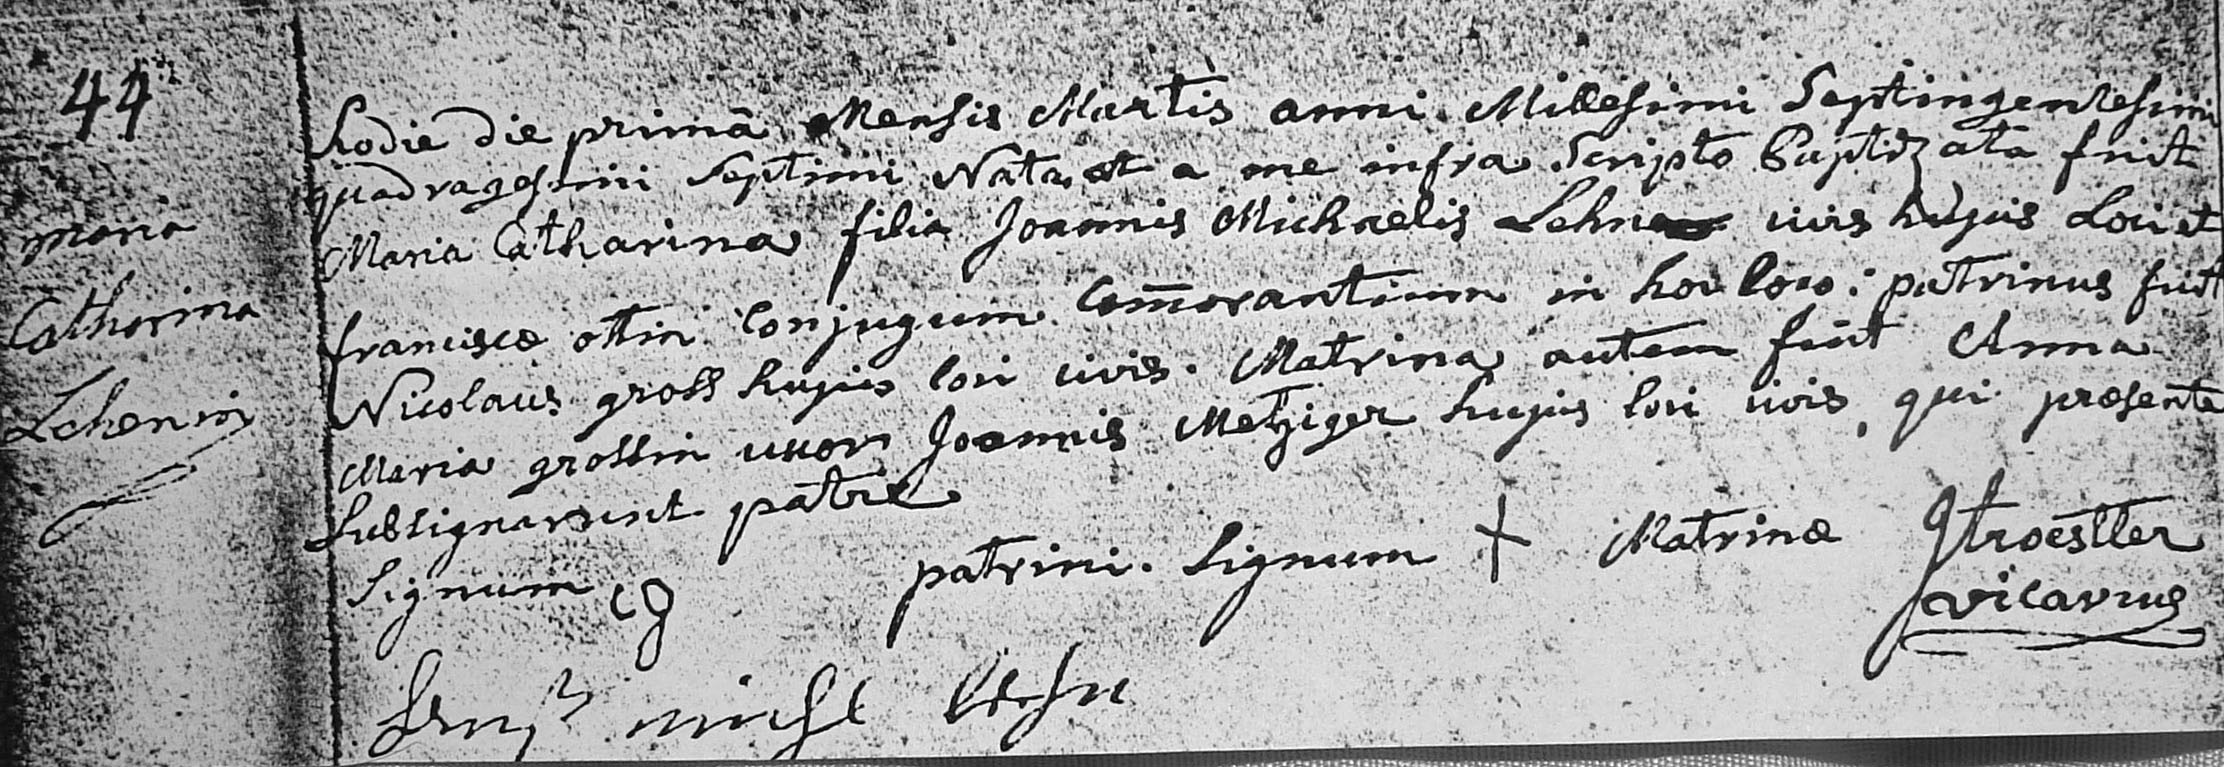 44
Maria
Catharina
Lehenin
hodie die primâ Mensis Martis anni Millesimi Septingentesimi
quadragesimi Septimi Nata et a me infra Scripto Baptizata fuit
Maria Catharina filia Joannis Michaelis Lehn civis hujus Loci et
francisce ottin Conjugum Com̄orantium in hoc loco: patrinus fuit
Nicolaus gross hujus loci civis. Matrina autem fuit Anna
Maria grossin uxor Joannis Metziger hujus loci civis, qui presente
Subsignarunt patre
Signum patrini. Signum + Matrinæ
vicarius
Lehn